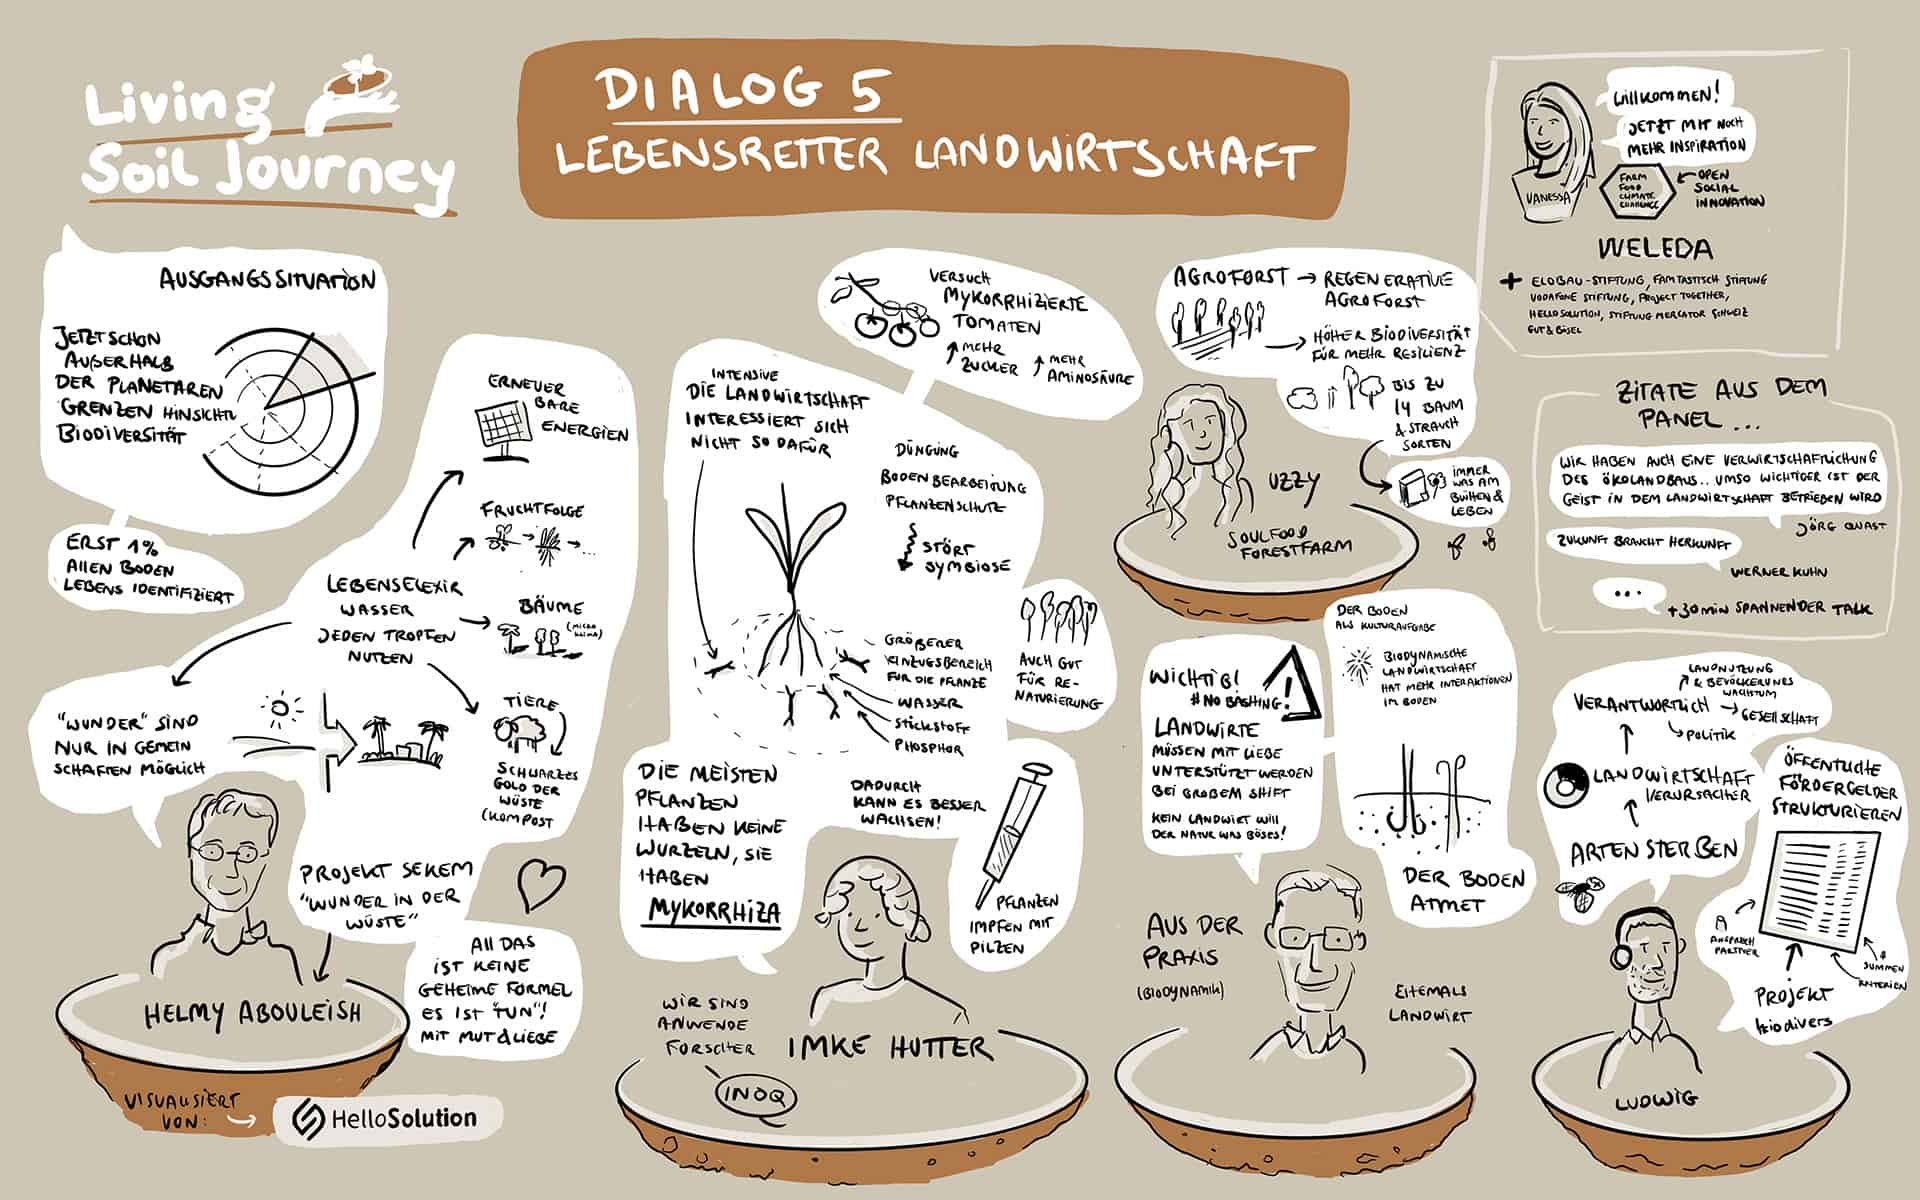 Living
Soil Journey
DIALOG 5
LEBENSRETTER LANDWIRTSCHAFT
WILLKOMMEN!
JETZT MIT NOCH
MEHR INSPIRATION
VANESSA
FARM
FOOD
CLIMATE
CHALLENGE
OPEN
SOCIAL
INNOVATION
WELEDA
+ ELOBAU-STIFTUNG, FAMTASTISCH STIFTUNG
VODAFONE STIFTUNG, PROJECT TOGETHER,
HELLOSOLUTION, STIFTUNG MERCATOR SCHWEIZ
GUT & BÖSEL
AUSGANGSSITUATION
JETZT SCHON
AUßERHALB
DER PLANETAREN
GRENZEN HINSICHTL
BIODIVERSITÄT
ERST 1%
ALLEN BODEN
LEBENS IDENTIFIZIERT
ERNEUER
BARE
ENERGIEN
FRUCHTFOLGE
...
LEBENSELEXIR
WASSER
JEDEN TROPFEN
NUTZEN
BÄUME
(MICRO
KLIMA)
TIERE
SCHWARZES
GOLD DER
WÜSTE
(KOMPOST
"WUNDER" SIND
NUR IN GEMEIN
SCHAFTEN MÖGLICH
PROJEKT SEKEM
"WUNDER IN DER
WÜSTE"
All DAS
IST KEINE
GEHEIME FORMEL
ES IST "TUN"!
MIT MUT & LIEBE
HELMY ABOULEISH
VISUALISIERT
VON:
HelloSolution
VERSUCH
MYKORRHIZIERTE
TOMATEN
MEHR
ZUCKER
MEHR
AMINOSÄURE
INTENSIVE
DIE LANDWIRTSCHAFT
INTERESSIERT SICH
NICHT SO DAFÜR
DÜNGUNG
BODENBEARBEITUNG
PFLANZENSCHUTZ
STÖRT
SYMBIOSE
GRÖßERER
EINZUGSBEREICH
FÜR DIE PFLANZE
WASSER
STICKSTOFF
PHOSPHOR
AUCH GUT
FÜR RE-
NATURIERUNG
DIE MEISTEN
PFLANZEN
HABEN KEINE
WURZELN, SIE
HABEN
MYKORRHIZA
DADURCH
KANN ES BESSER
WACHSEN!
PFLANZEN
IMPFEN MIT
PILZEN
WIR SIND
ANWENDE
FORSCHER
INOQ
IMKE HUTTER
AGROFORST → REGENERATIVE
AGROFORST
HÖHER BIODIVERSITÄT
FÜR MEHR RESILIENZ
BIS ZU
14 BAUM
& STRAUCH
SORTEN
IMMER
WAS AM
BLÜHEN &
LEBEN
UZZY
SOULFOOD
FORESTFARM
WICHTIG!
#NO BASHING!
!
LANDWIRTE
MÜSSEN MIT LIEBE
UNTERSTÜTZT WERDEN
BEI GROßEM SHIFT
KEIN LANDWIRT WILL
DER NATUR WAS BÖSES!
DER BODEN
ALS KULTURAUFGABE
BIODYNAMISCHE
LANDWIRTSCHAFT
HAT MEHR INTERAKTIONEN
IM BODEN
DER BODEN
ATMET
AUS DER
PRAXIS
(BIODYNAMIK)
EHEMALS
LANDWIRT
ZITATE AUS DEM
PANEL ...
WIR HABEN AUCH EINE VERWIRTSCHAFTLICHUNG
DES ÖKOLANDBAUS.. UMSO WICHTIGER IST DER
GEIST IN DEM LANDWIRTSCHAFT BETRIEBEN WIRD
JÖRG QUAST
ZUKUNFT BRAUCHT HERKUNFT
WERNER KUHN
...
+30min SPANNENDER TALK
LANDNUTZUNG
& BEVÖLKERUNGS
WACHSTUM
VERANTWORTLICH → GESELLSCHAFT
POLITIK
LANDWIRTSCHAFT
VERURSACHER
ARTENSTERBEN
ÖFFENTLICHE
FÖRDERGELDER
STRUKTURIEREN
ANSPRUCH
PARTNER
SUMMEN
KRITERIEN
PROJEKT
kiodivers
LUDWIG